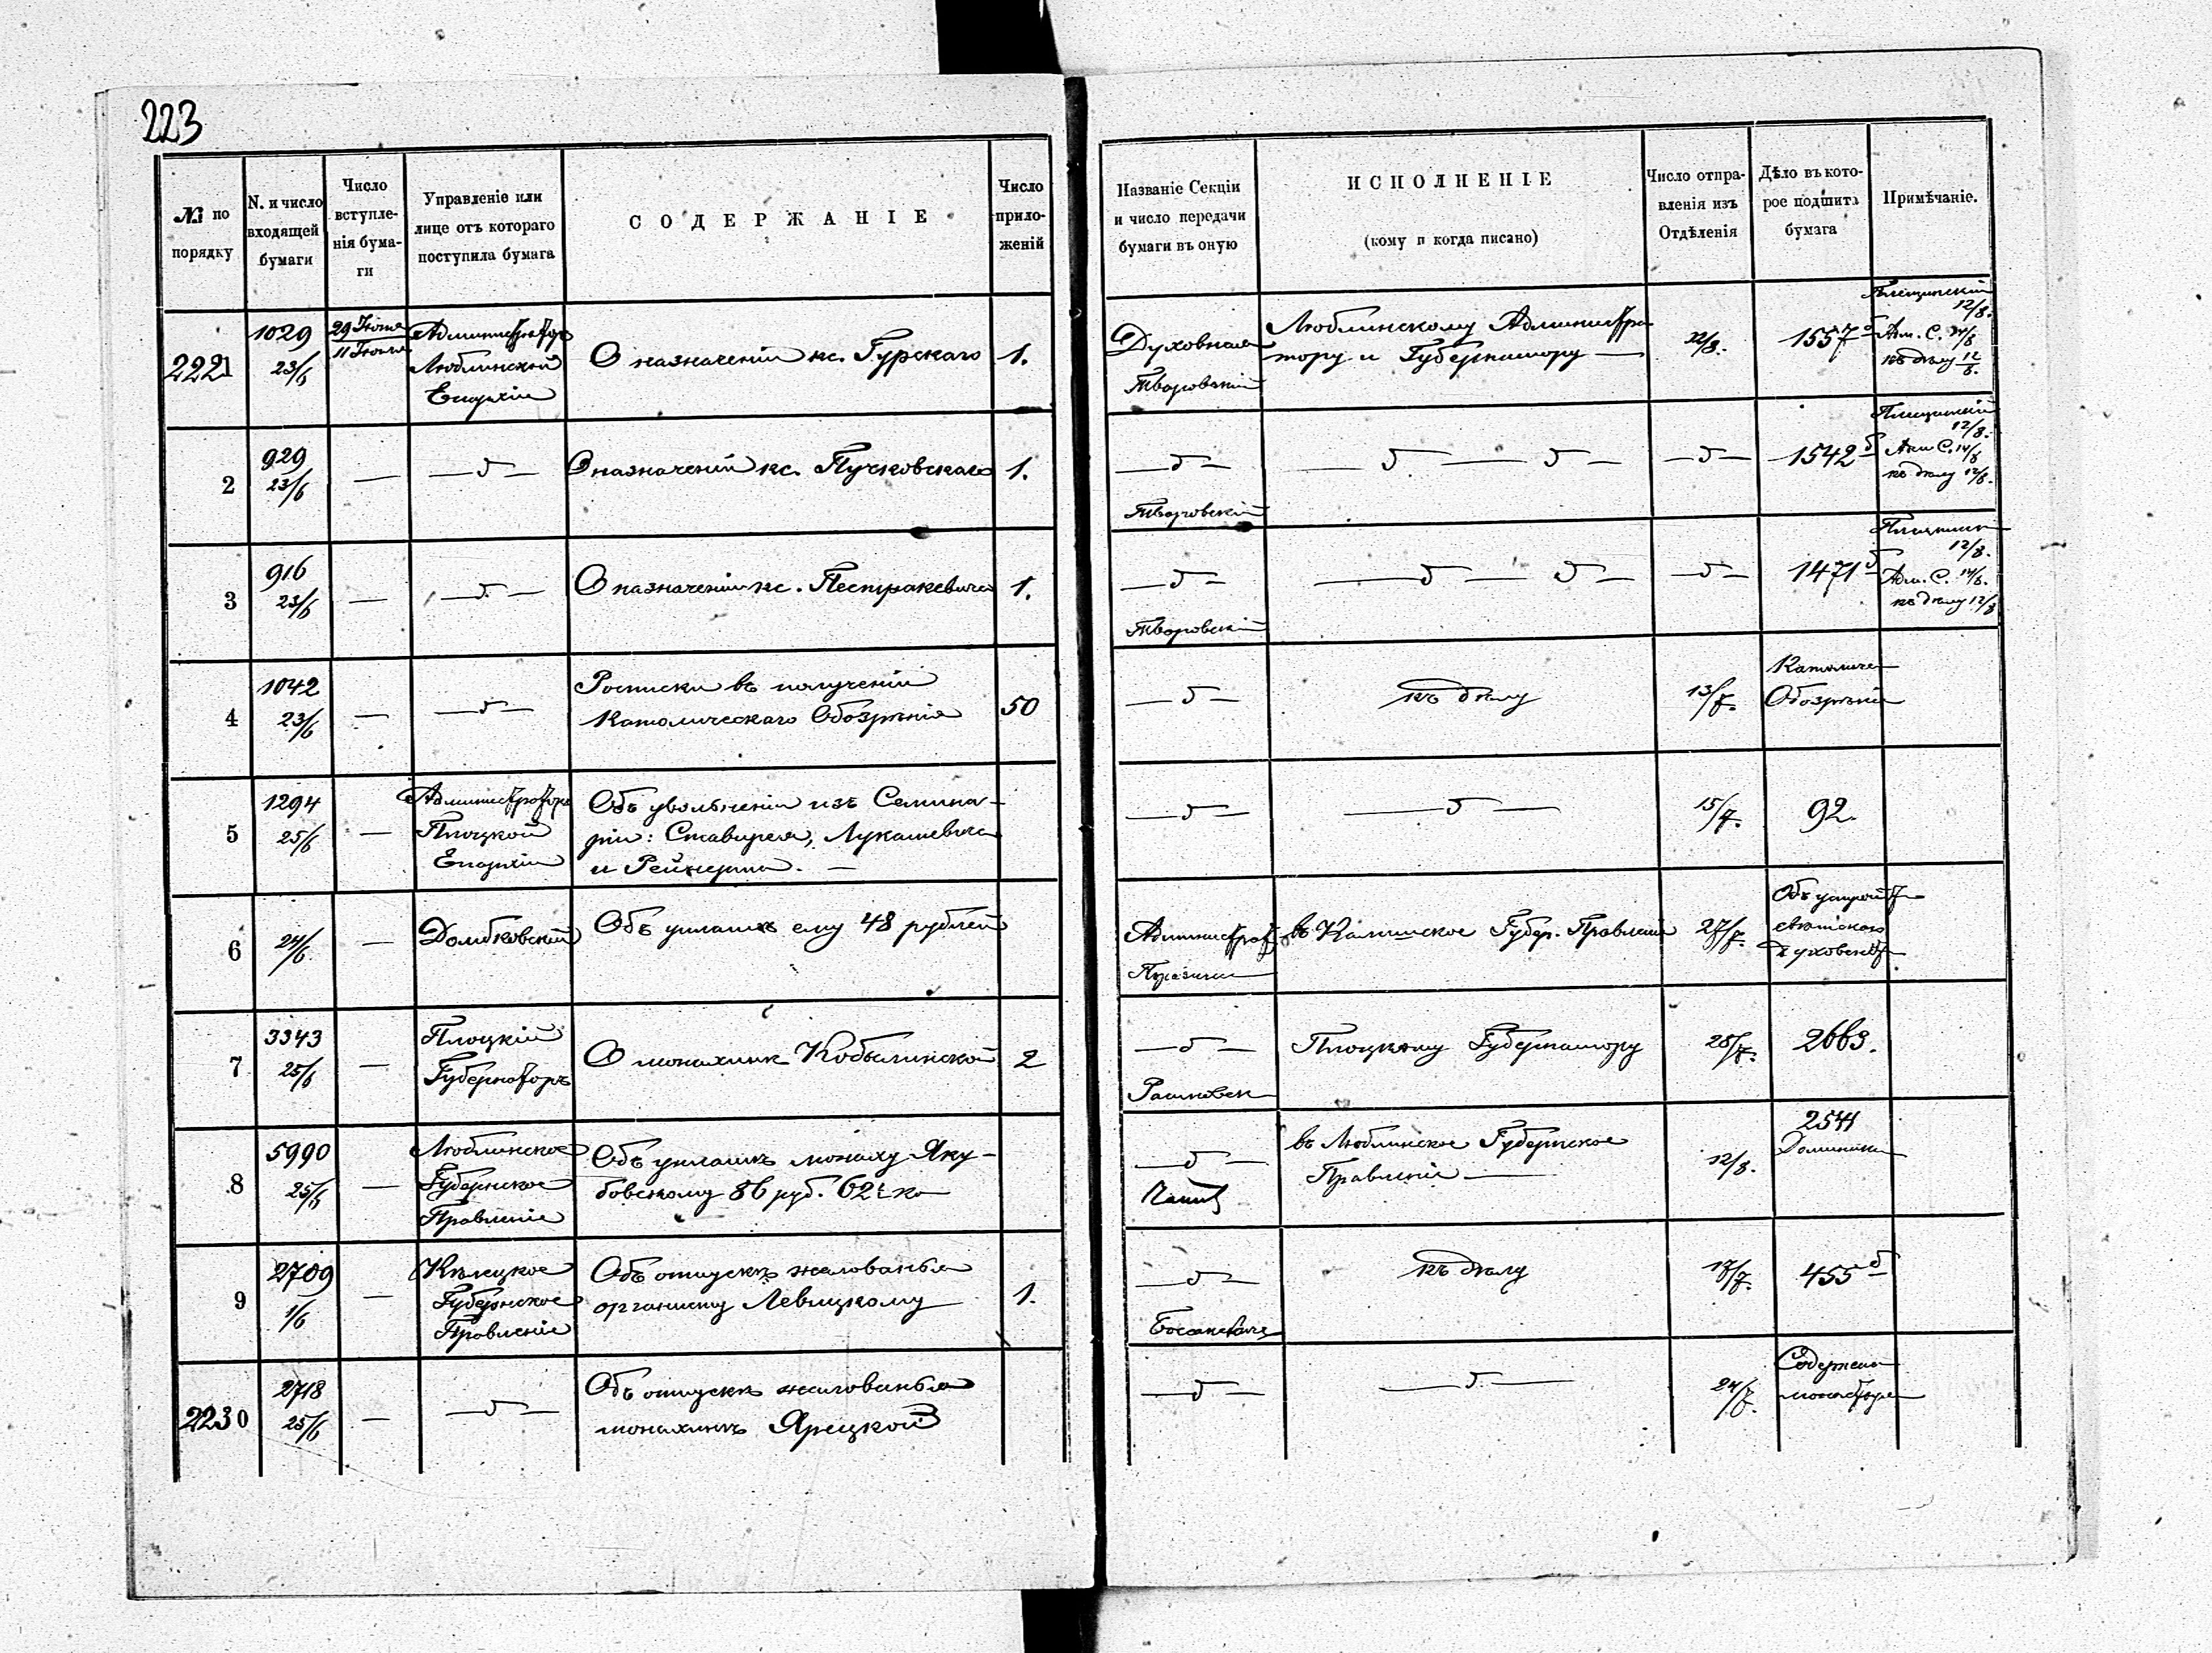 223
№ по порядку
N. и число входящей бумаги
Число вступленія бумаги
Управленіе или лице отъ котораго поступила бумага
СОДЕРЖАНІЕ
Число приложеній
Названіе Секціи и число передачи бумаги въ оную
ИСПОЛНЕНІЕ
(кому и когда писано)
Число отправленія изъ Отдѣленія
Дѣло въ которое подшита бумага
Примѣчаніе.
2221
1029
23/6
29 Іюня
11 Іюля
Администраторъ
Люблинской
Епархіи
О назначеніи кс. Гурскаго
1.
Духовная
Творовскій
Люблинскому Администра-
тору и Губернатору —
12/8.
1557 б
12/8.
Адм. С. 14/8
къ дѣлу 12/8.
2
929
23/6
—
— д —
О назначеніи кс. Пучковскаго
1.
— д —
Творовскій
— д — д —
— д —
1542 б
12/8.
Адм С. 14/8
къ дѣлу 12/8.
3
916
23/6
—
— д —
О назначеніи кс. Пестракевича
1.
— д —
Творовскій
— д — д —
— д —
1471 б
12/8.
Адм. С. 14/8.
къ дѣлу 12/8
4
1042
23/6
—
— д —
Росписки въ полученіи
Католическаго Обозрѣнія
50
— д —
къ дѣлу
13/7.
Католиче
Обозрѣніе
5
1294
25/6
—
Администраторъ
Плоцкой
Епархіи
Объ увольненіи изъ Семина-
ріи: Ставирея, Лукашевича
и Рейнерта. —
— д —
— д —
15/7.
92.
6
24/6
—
Домбковскій
Объ уплатѣ ему 48 рублей
Администрат
въ Калишское Губер. Правленіе
27/7.
Объ устройст
свѣтскаго
духовенст
7
3343
25/6
—
Плоцкій
Губернаторъ
О монахинѣ Кобылинской
2
— д —
Плоцкому Губернатору
28/7.
2663.
8
5990
25/6
—
Люблинское
Губернское
Правленіе
Объ уплатѣ монаху Яку-
бовскому 86 руб. 62½ ко
— д —
въ Люблинское Губернское
Правленіе —
12/8.
2541
Доминика
9
2709
1/6
—
Кѣлецкое
Губернское
Правленіе
Объ отпускѣ жалованья
органисту Левицкому
1.
— д —
къ дѣлу
17/7.
455 б
2230
2718
25/6
—
— д —
Объ отпускѣ жалованья
монахинѣ Ярецкой
— д —
— д —
24/7.
Содержан
монастыря